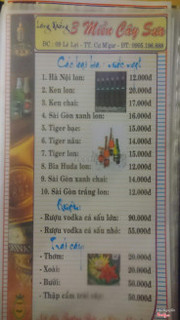 Làng Nướng 3 Miền Cây Sưa
ĐC : 09 Lê Lợi - TT. Cư M'gar - ĐT:
Các loại bia, nước ngọt
1. Hà Nội lon: 12.000đ
2. Ken lon: 20.000đ
3. Ken chai: 17.000đ
4. Sài Gòn xanh lon: 16.000đ
5. Tiger bạc: 15.000đ
6. Tiger nâu: 14.000đ
7. Tiger lon: 15.000đ
8. Bia Huda lon: 12.000đ
9. Sài Gòn xanh chai: 14.000đ
10. Sài Gòn trắng lon: 12.000đ
Rượu:
- Rượu vodka cá sấu lớn: 90.000đ
- Rượu vodka cá sấu nhỏ: 55.000đ
Trái cây:
- Thơm: 20.000đ
- Xoài: 20.000đ
- Bưởi: 50.000đ
- Thập cẩm trái cây: 50.000đ